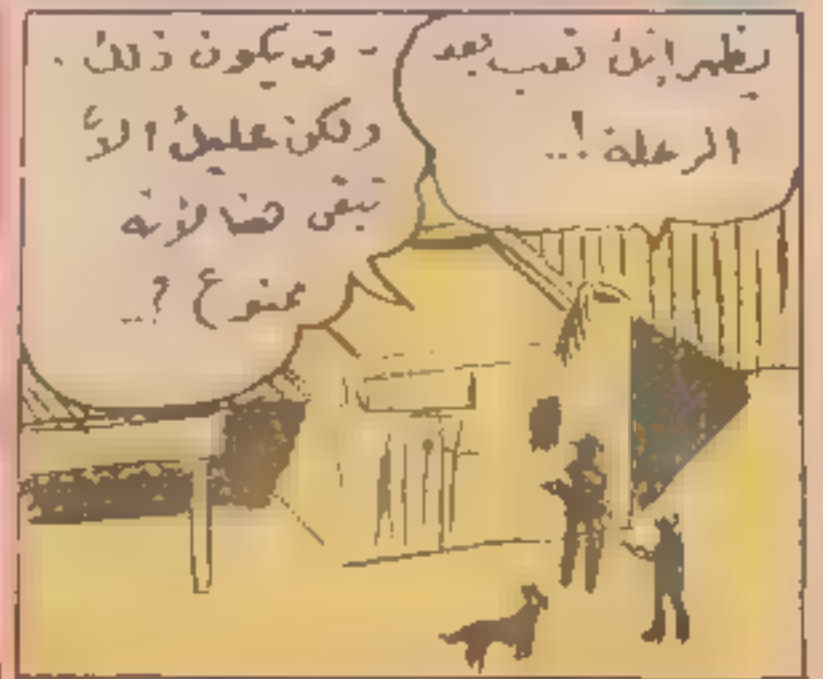 يظهر إنك تعب بعد
الرحلة !..
- قد يكون ذلك .
ولكن عليك ألا
تبقى هنا لأنه
ممنوع ؟..